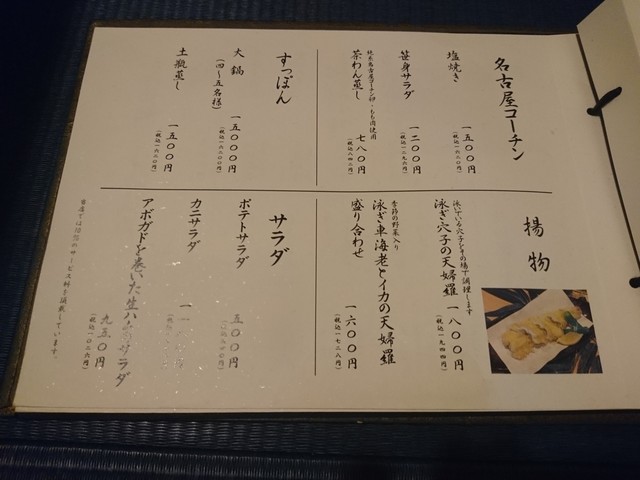 名古屋コーチン
塩焼き
一五〇〇円
(税込一六二〇円)
笹身サラダ
一二〇〇円
(税込一二九六円)
茶わん蒸し
七八〇円
(税込八四二円)
すっぽん
大鍋
(四～五名様)
一五〇〇〇円
(税込一六二〇〇円)
土瓶蒸し
一五〇〇円
(税込一六二〇円)
揚物
泳いでいる穴子をその場で調理します
泳ぎ穴子の天婦羅
一八〇〇円
(税込一九四四円)
季節の野菜入り
泳ぎ車海老とイカの天婦羅
盛り合わせ
一六〇〇円
(税込一七二八円)
サラダ
ポテトサラダ
五〇〇円
(税込五四〇円)
カニサラダ
アボガドを巻いた生ハムサラダ
九五〇円
(税込一〇二六円)
当店では10%のサービス料を頂戴しています。